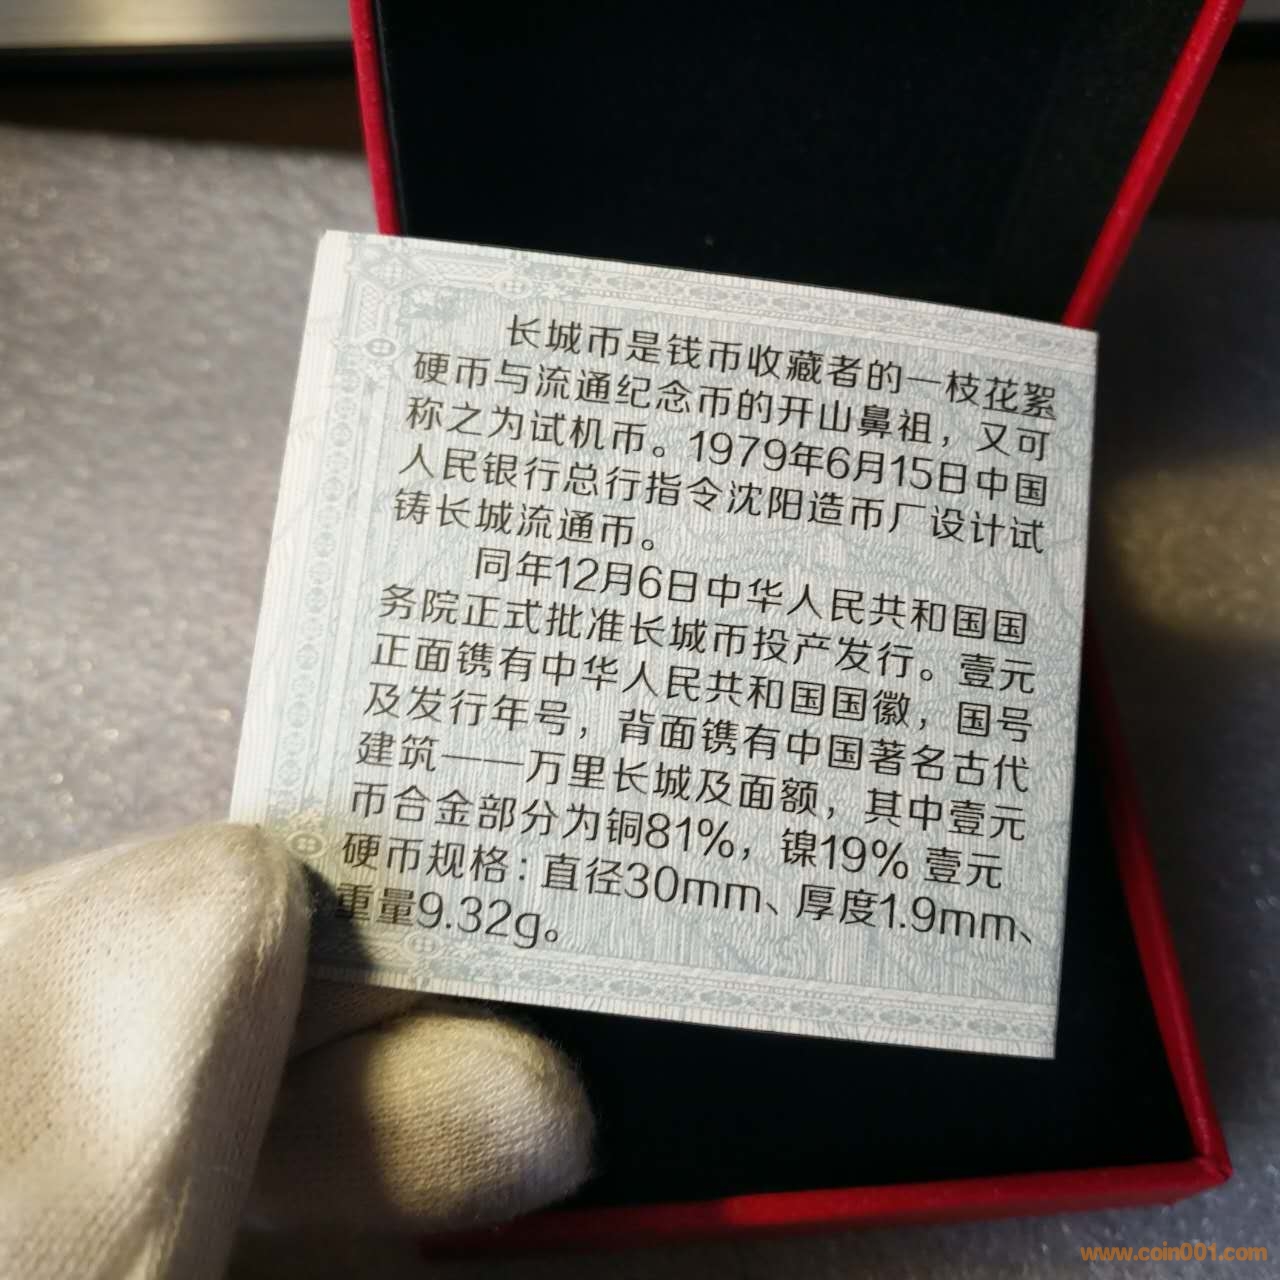 长城币是钱币收藏者的一枝花絮
硬币与流通纪念币的开山鼻祖，又可
称之为试机币。1979年6月15日中国
人民银行总行指令沈阳造币厂设计试
铸长城流通币。
同年12月6日中华人民共和国国
务院正式批准长城币投产发行。壹元
正面镌有中华人民共和国国徽，国号
及发行年号，背面镌有中国著名古代
建筑——万里长城及面额，其中壹元
币合金部分为铜81%，镍19% 壹元
硬币规格：直径30mm、厚度1.9mm、
重量9.32g。
www.coin001.com